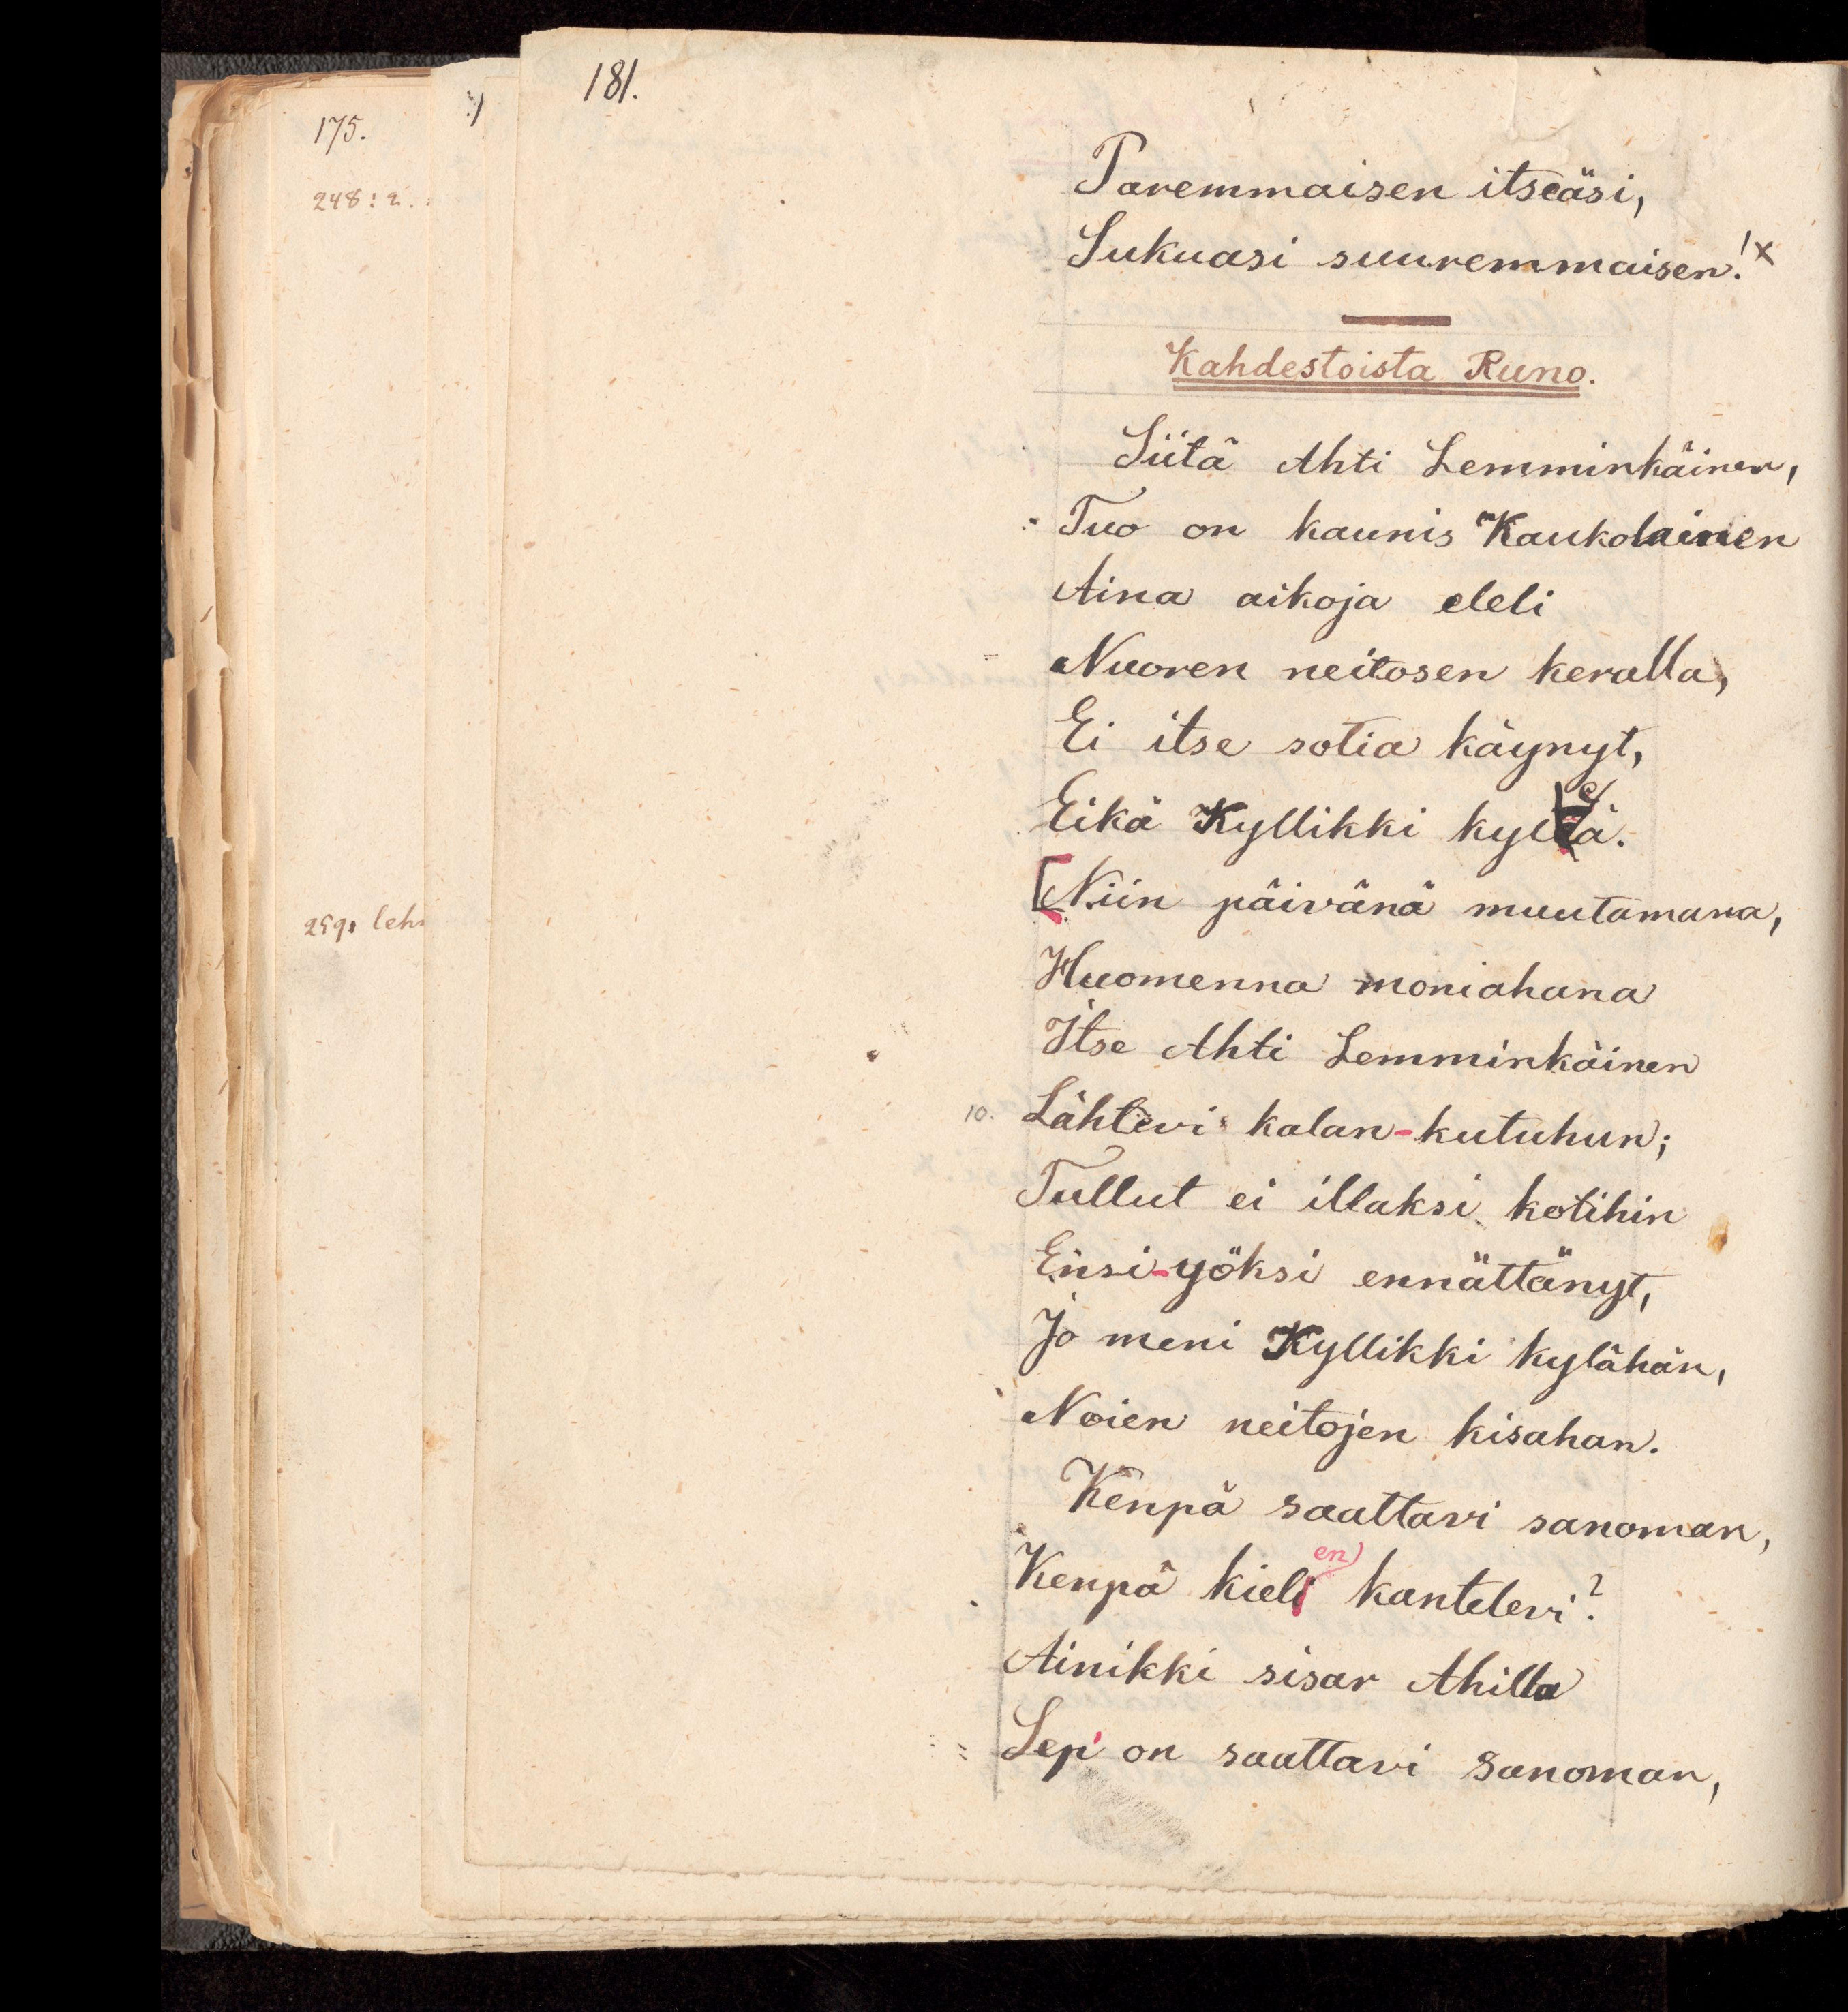 175.
248: 2.
181.
Paremmaisen itseäsi,
Sukuasi suuremmaisen!x
Kahdestoista Runo.
Siitä Ahti Lemminkäinen,
Tuo on kaunis Kaukolainen
Aina aikoja eleli
Nuoren neitosen keralla,
Ei itse sotia käynyt,
Eikä Kyllikki kyleä.
[Niin päivänä muutamana,
Huomenna moniahana
Itse Ahti Lemminkäinen
10. Lähtevi kalan-kutuhun;
Tullut ei illaksi kotihin
Ensi-yöksi ennättänyt,
Jo meni Kyllikki kylähän,
Noien neitojen kisahan.
Kenpä saattavi sanoman,
Kenpä kielen kantelevi?
Ainikki sisar Ahilla
Sep' on saattavi sanoman,